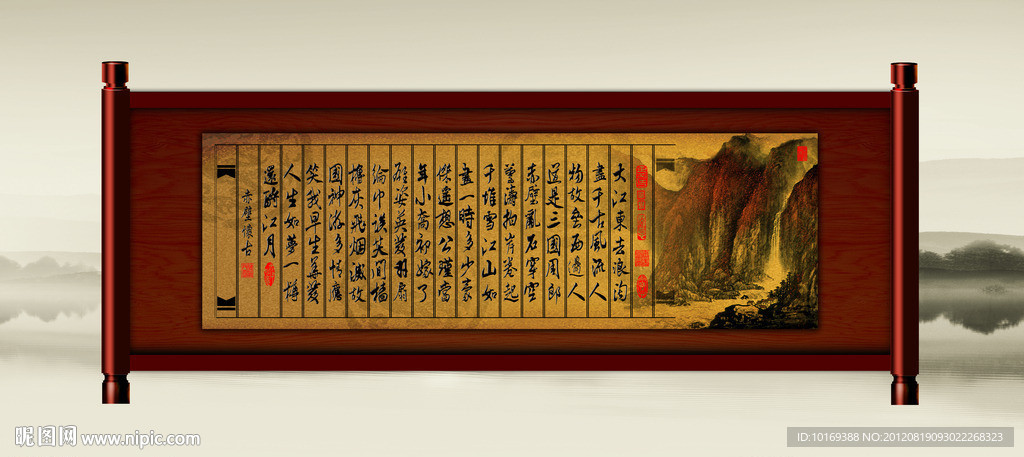 大江東去浪淘
盡千古風流人
物故壘西邊人
道是三國周郎
赤壁亂石穿空
驚濤拍岸卷起
千堆雪江山如
畫一時多少豪
傑遙想公瑾當
年小喬初嫁了
雄姿英發羽扇
綸巾談笑間檣
櫓灰飛烟滅故
國神游多情應
笑我早生華發
人生如夢一樽
還酹江月
赤壁懷古
昵图网 www.nipic.com
ID:10169388 NO:20120819093022268323